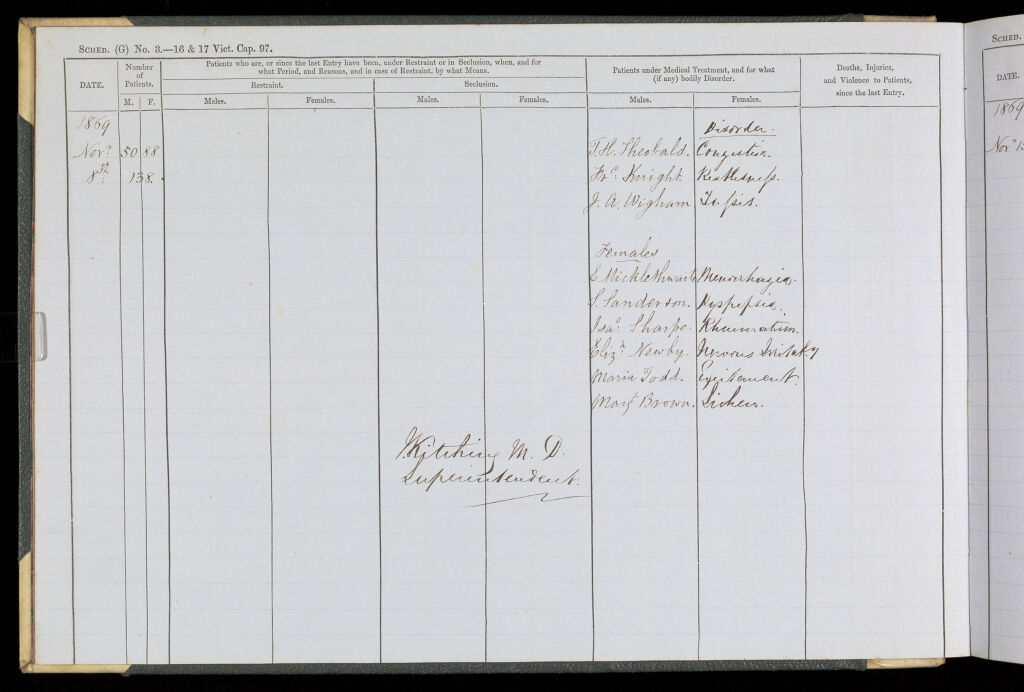 SCHED. (G) No. 3.—16 & 17 Vict. Cap. 97.
DATE.
Number of Patients.
M. F.
Patients who are, or since the last Entry have been, under Restraint or in Seclusion, when, and for
what Period, and Reasons, and in case of Restraint, by what Means.
Restraint. Seclusion.
Males. Females. Males. Females.
Patients under Medical Treatment, and for what
(if any) bodily Disorder.
Males. Females.
Deaths, Injuries,
and Violence to Patients,
since the last Entry.
1869 Disorder.
Novr. 50 88 T. H. Theobald. Congestion.
8th 138. Frs. Knight. Restlessness.
J. A. Wigham Tussis.
Females
E Micklethwaite Menorrhagia.
S. Sanderson. Dyspepsia.
Isa. Sharpe. Rheumatism.
Elizth Newby. Nervous Irritaby
Maria Todd. Excitement.
Mary Brown. Lichen.
J. Kitching M. D.
Superintendent.
SCHED.
DATE.
1869
Novr 15